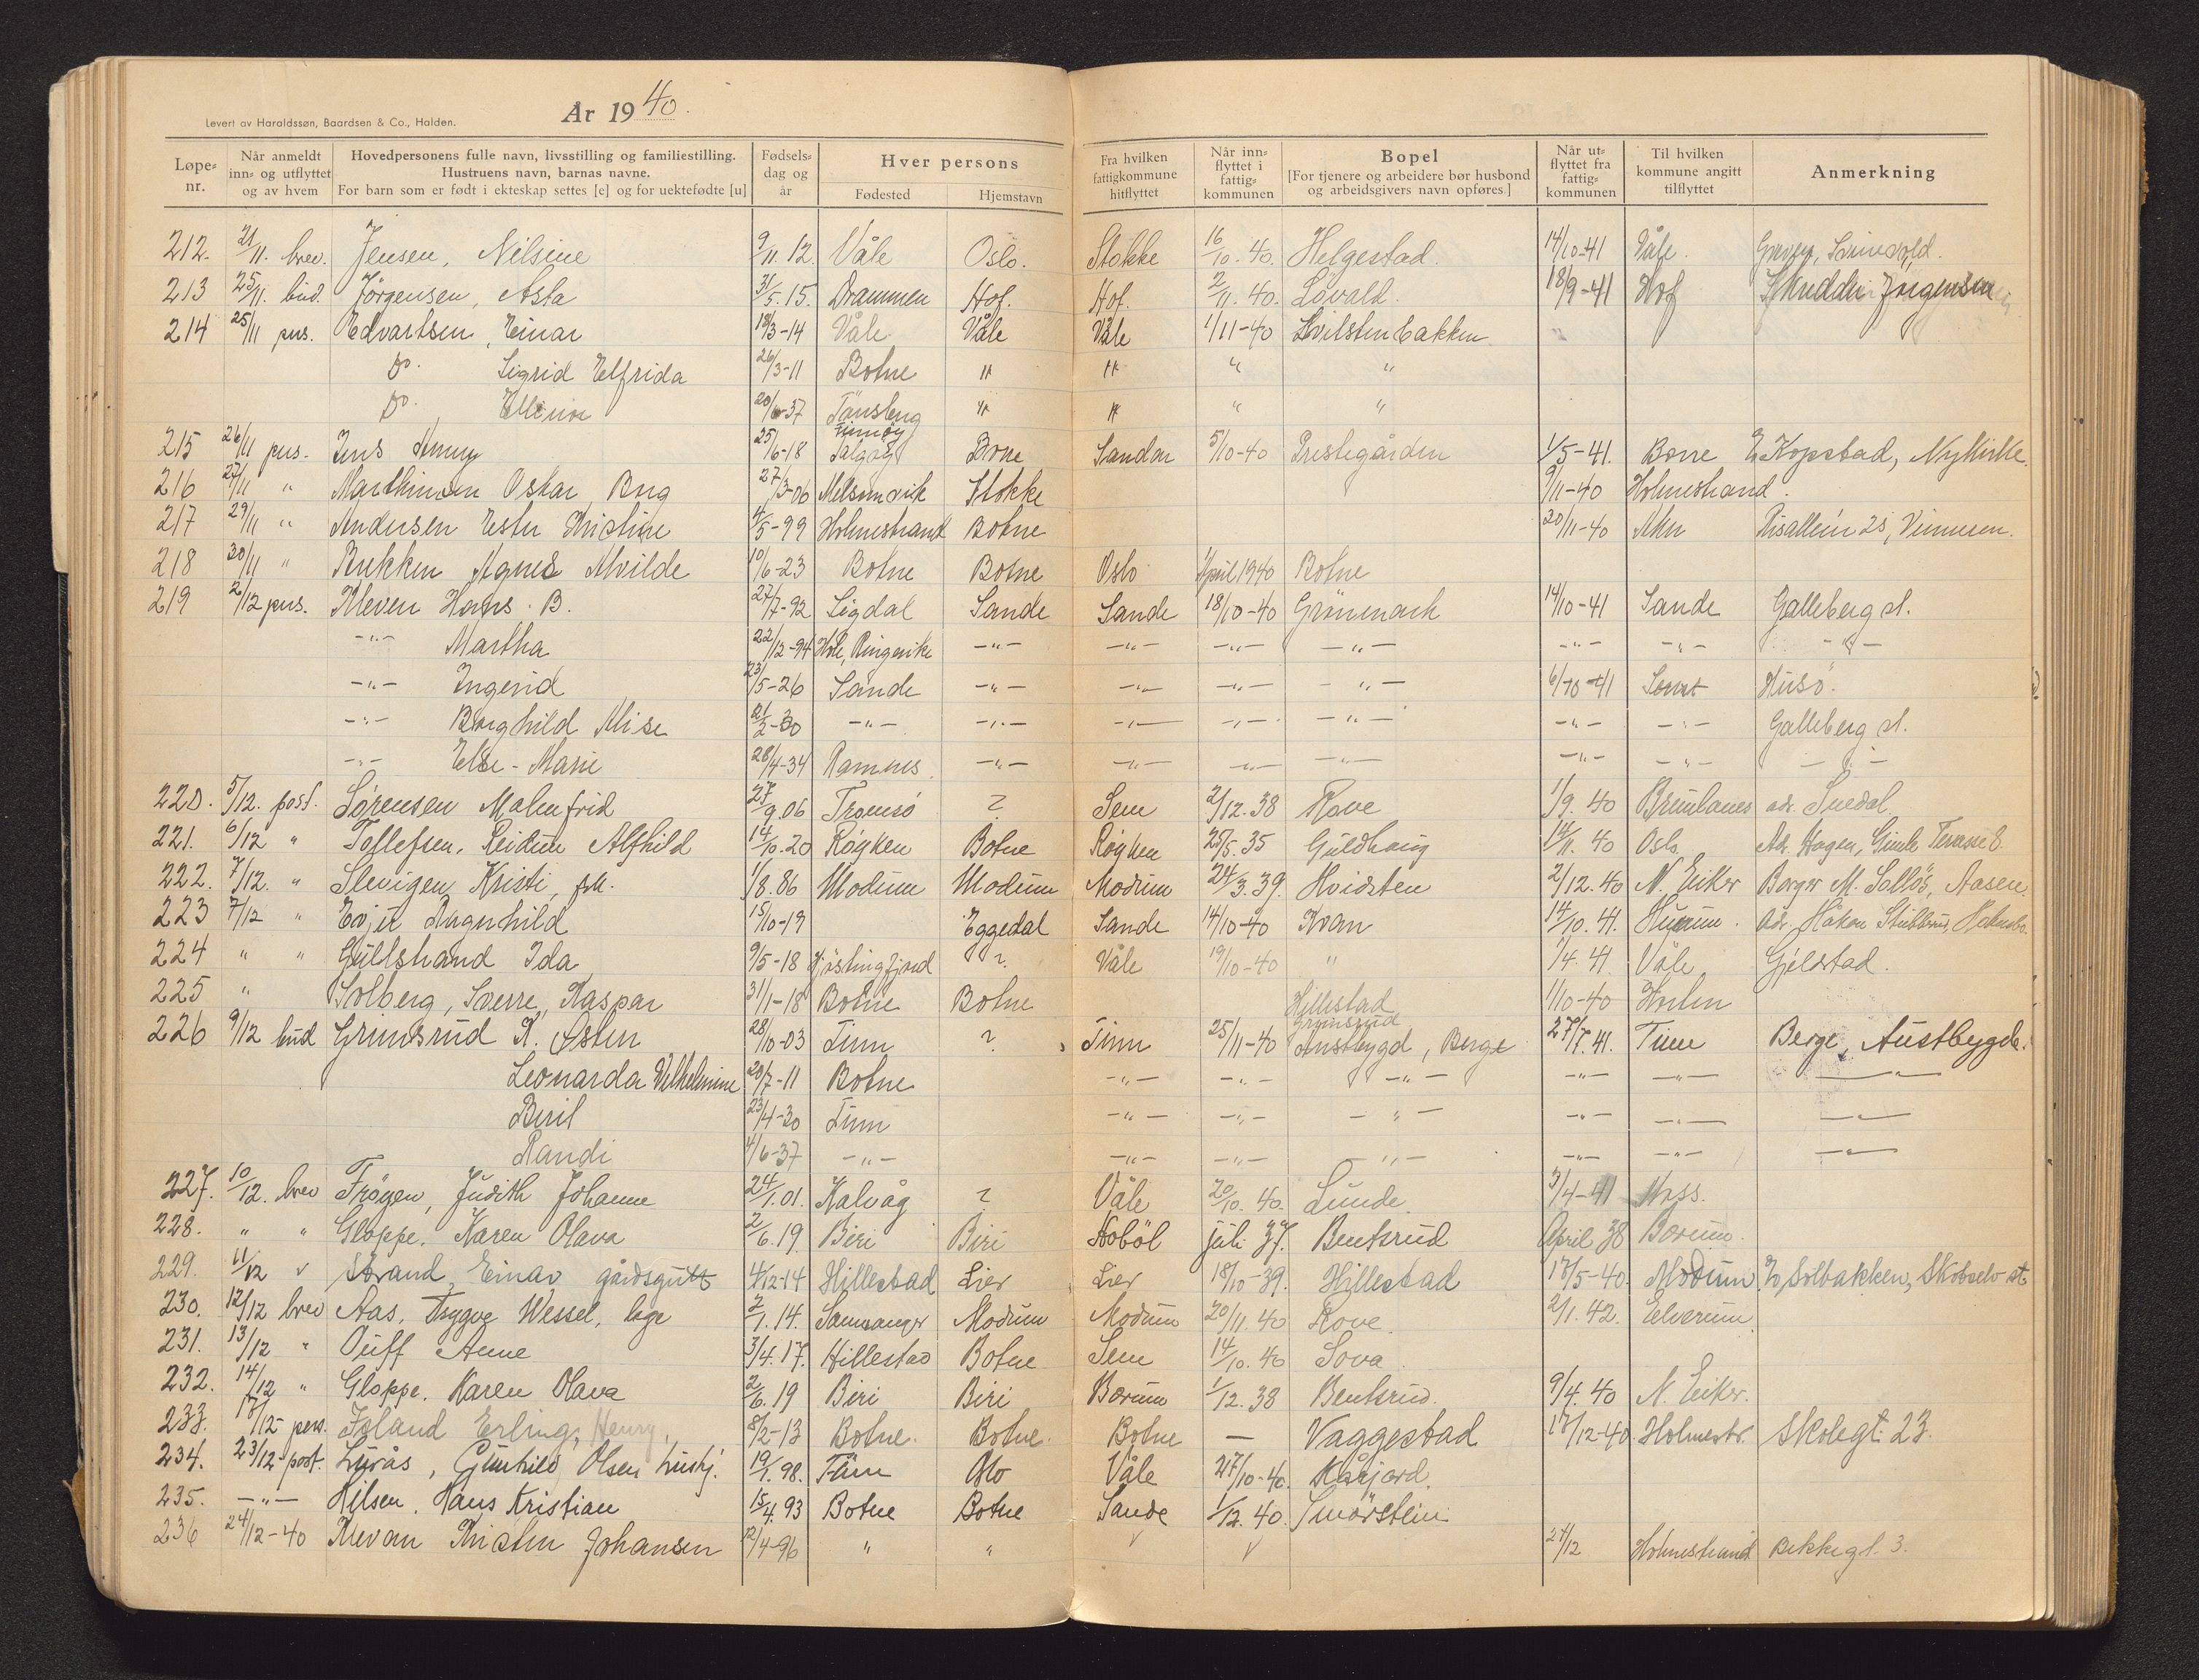 Levert av Haraldssøn, Baardsen & Co., Halden.
År 1940.
Løpe-nr. Når anmeldt inn- og utflyttet og av hvem Hovedpersonens fulle navn, livsstilling og familiestilling. Hustruens navn, barnas navne. For barn som er født i ekteskap settes [e] og for uektefødte [u] Fødsels-dag og år Hver persons Fødested Hjemstavn Fra hvilken fattigkommune hitflyttet Når inn-flyttet i fattig-kommunen Bopel [For tjenere og arbeidere bør husbond og arbeidsgivers navn opføres] Når ut-flyttet fra fattig-kommunen Til hvilken kommune angitt tilflyttet Anmerkning
212. 21/11. brev. Jensen, Nilsine 9/11. 12. Våle Oslo. Stokke 16/10. 40. Helgestad. 14/10-41 Våle.
213 25/11. bud. Jørgensen, Asta 31/5. 15. Drammen Hof. Hof. 2/11. 40. Løvald. 18/9-41 Hof Jørgensen
214 25/11 pers. Edvartsen, Einar 18/3-14 Våle Våle Våle 1/11-40
Do. Sigrid Elfrida 26/3-11 Botne " " " "
Do. 20/6-37 Tønsberg " " " "
215 26/11 pers. Jens 25/6-18 Borre Sandar 5/10-40 Prestegården 1/5-41. Borre Kopstad, Nykirke.
216 27/11 " Marthinsen Oskar, Berg 27/3-06 Melsomvik Stokke 9/11-40 Holmestrand.
217 29/11 " Andersen Ester Kristine 4/5-99 Holmestrand Botne 20/11-40
218 30/11 " Bukken Agnes Alvilde 10/6-23 Botne Botne Oslo April 1940 Botne
219 2/12 pers. Kleven Hans B. 27/7-92 Sigdal Sande Sande 18/10-40 Grønmark 14/10-41 Sande Galleberg st.
-"- Martha 22/12-94 Hole, Ringerike -"- -"- -"- -"- -"- -"- -"-
-"- Ingerid 23/5-26 Sande -"- -"- -"- -"- 6/10-41 Husø.
-"- Borghild Alise 21/2-30 -"- -"- -"- -"- -"- -"- -"- Galleberg st.
-"- Else-Marie 28/4-34 Ramnes -"- -"- -"- -"- -"- -"- -"-
220. 5/12. post. Sørensen Malmfrid 27/9.06 Tromsø ? Sem 2/12.38 Rove 1/9.40 Brunlanes
221. 6/12 " Tollefsen, Reidun Alfhild 14/10.20 Røyken Botne Røyken 25/5.35 Guldhaug 14/11.40 Oslo Ad. Hagen, Gimle Terasse 8.
222. 7/12. " Slevigen, Kristi, frk. 1/8.86 Modum Modum Modum 24/3.39. Hvidsten 2/12.40 N. Eiker
223 7/12 " Evju Ragnhild 15/10-19 Eggedal Sande 14/10-40 Kvan 14/10.41. Hurum. Adr. Håkon Stubberud,
224 " " Gullstrand Ida 9/5-18 ? Våle 19/10-40 " 1/4.41 Våle Gjelstad.
225 " Solberg, Sverre, Kaspar 31/1-18 Botne Botne Hillestad 1/10-40
226 9/12 bud Grimsrud K. Østen 28/10-03 Tinn ? Tinn 25/11-40 Grimsrud Austbygd, Berge 27/7.41. Tinn Berge, Austbygde.
Leonarda Vilhelmine 20/7-11 Botne -"- -"- -"- -"- -"- -"-
Beril 23/4-30 Tinn -"- -"- -"- -"- -"- -"-
Randi 4/6-37 -"- -"- -"- -"- -"- -"- -"-
227. 10/12. brev Frøyen, Judith Johanne 24/1.01. Kalvåg ? Våle 20/10.40. Lunde. 3/4-41 Moss.
228. " " Gloppe. Karen Olava 2/6.19. Biri Biri Hobøl juli 37. Bentsrud April 38 Bærum.
229. 11/12 " Strand, Einar gårdsgutt 4/12-14 Hillestad Lier Lier 18/10-39. Hillestad 17/5-40. Modum Solbakken, Skotselv st.
230. 12/12 brev Aas, Trygve Wessel, lege 2/1.14. Samnanger Modum Modum 20/11.40 Rove. 2/1.42. Elverum
231. 13/12 " Ouff Anne 3/4.17. Hillestad Botne Sem 14/10.40 Sova.
232. 14/12 " Gloppe. Karen Olava 2/6.19 Biri Biri Bærum 1/12.38 Bentsrud. 9/4.40 N. Eiker.
233. 17/12- pers. Foland Erling, Henry, 8/2-13 Botne. Botne. Botne — Vaggestad 17/12-40 Holmestr. Skolegt. 23.
234. 23/12 post. Lurås, Gunhild Olsen hushj. 19/1.98. Oslo Våle 27/10-40. Kåejord.
235. -"- Hilsen. Hans Kristian 15/4.93 Botne Botne Sande 1/12.40. Smørstein
236 24/12-40 Klevan Kristen Johansen 12/4-96 " " 24/12 Holmestrand Bekkegt. 3.